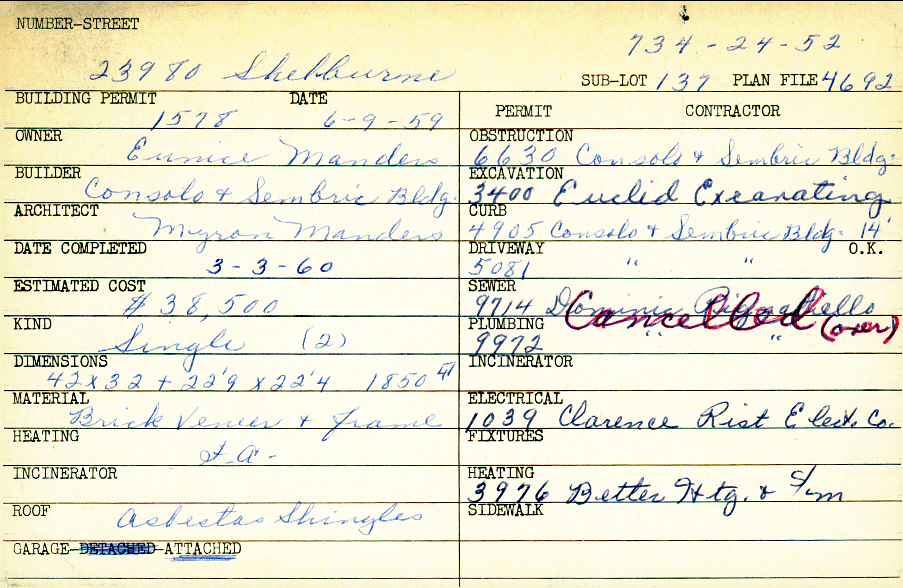 NUMBER-STREET
734-24-52
23980 Shelburne
SUB-LOT 137 PLAN FILE 4692
BUILDING PERMIT DATE
1578 6-9-59
OWNER
Eunice Manders
BUILDER
Consolo & Sembric Bldg.
ARCHITECT
Myron Manders
DATE COMPLETED
3-3-60
ESTIMATED COST
$38,500
KIND
Single (2)
DIMENSIONS
42x32 + 22'9 x 22'4 1850
MATERIAL
Brick Veneer & frame
HEATING
F.A.
INCINERATOR
ROOF
Asbestos Shingles
GARAGE-DETACHED-ATTACHED
PERMIT CONTRACTOR
OBSTRUCTION
6630 Consolo & Sembric Bldg.
EXCAVATION
3400 Euclid Excavating
CURB
4905 Consolo & Sembric Bldg. 14'
DRIVEWAY O.K.
5081 " "
SEWER
9714 Dominic
Cancelled (over)
PLUMBING
9972 " "
INCINERATOR
ELECTRICAL
1039 Clarence Rist Elect. Co.
FIXTURES
HEATING
3976 Better Htg. & S/m
SIDEWALK